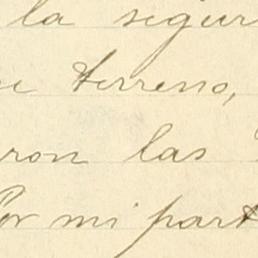 la segur
terreno,
ron las
Por mi part